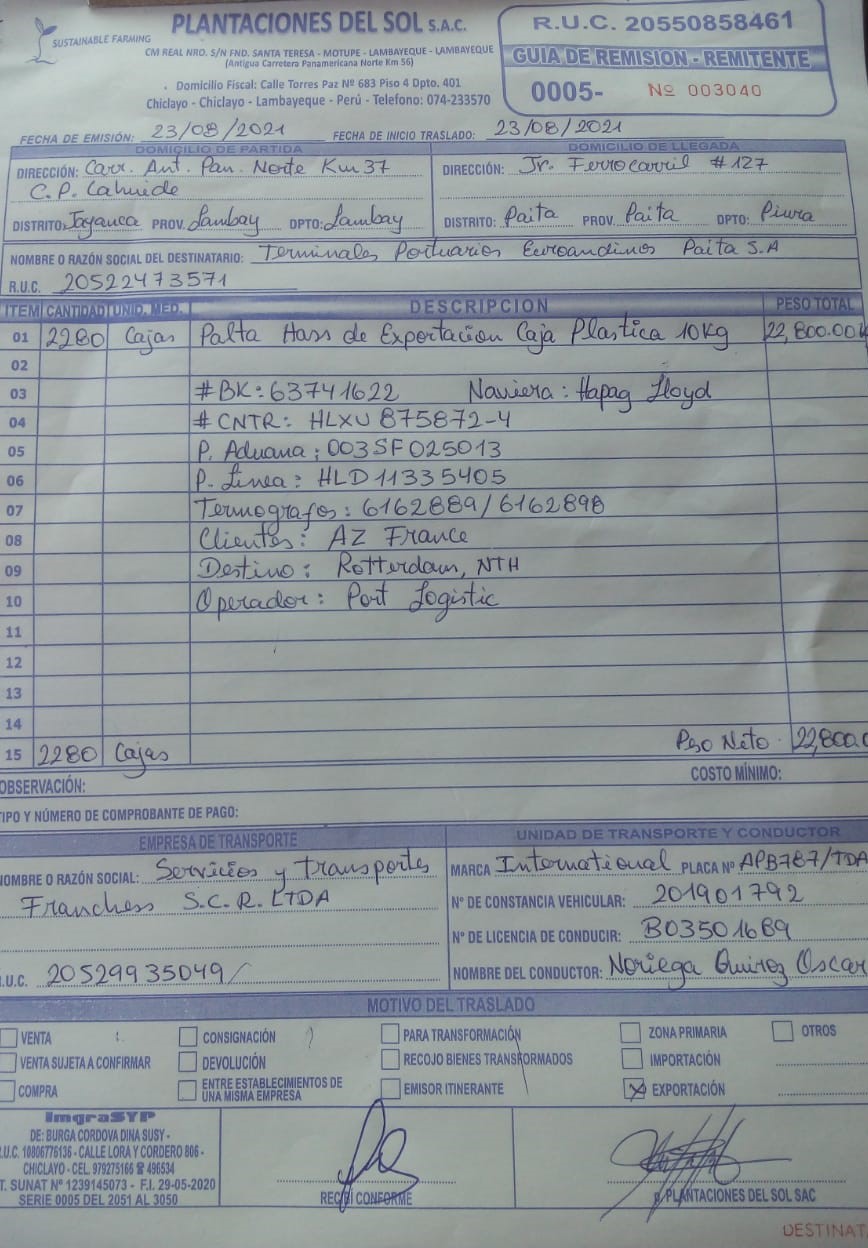 SUSTAINABLE FARMING
PLANTACIONES DEL SOL S.A.C.
CM REAL NRO. S/N FND. SANTA TERESA - MOTUPE - LAMBAYEQUE - LAMBAYEQUE
(Antigua Carretera Panamericana Norte Km 56)
Domicilio Fiscal: Calle Torres Paz Nº 683 Piso 4 Dpto. 401
Chiclayo - Chiclayo - Lambayeque - Perú - Telefono: 074-233570
R.U.C. 20550858461
GUIA DE REMISION - REMITENTE
0005- Nº 003040
FECHA DE EMISIÓN: 23/08/2021 FECHA DE INICIO TRASLADO: 23/08/2021
DOMICILIO DE PARTIDA
DIRECCIÓN: Carr. Ant. Pan. Norte Km 37
C.P. Cahuide
DISTRITO: Jayanca PROV. Lambay DPTO: Lambay
DOMICILIO DE LLEGADA
DIRECCIÓN: Jr. Ferrocarril #127
DISTRITO: Paita PROV. Paita DPTO: Piura
NOMBRE O RAZÓN SOCIAL DEL DESTINATARIO: Terminales Portuarios Euroandinos Paita S.A
R.U.C. 20522473571
ITEM CANTIDAD UNID. MED. DESCRIPCION PESO TOTAL
01 2280 Cajas Palta Hass de Exportacion Caja Plastica 10Kg 22,800.00
02
03 #BK: 63741622 Naviera: Hapag Lloyd
04 #CNTR: HLXU 875872-4
05 P. Aduana: 003SF025013
06 P. Linea: HLD11335405
07 Termografos: 6162889/6162898
08 Clientes: AZ France
09 Destino: Rotterdam, NTH
10 Operador: Port Logistic
11
12
13
14
15 2280 Cajas Peso Neto 22,800.0
OBSERVACIÓN: COSTO MÍNIMO:
TIPO Y NÚMERO DE COMPROBANTE DE PAGO:
EMPRESA DE TRANSPORTE
NOMBRE O RAZÓN SOCIAL: Servicios y transportes
Franchess S.C.R. LTDA
R.U.C. 20529935049
UNIDAD DE TRANSPORTE Y CONDUCTOR
MARCA International PLACA Nº APB787/TDA
Nº DE CONSTANCIA VEHICULAR: 201901792
Nº DE LICENCIA DE CONDUCIR: B03501689
NOMBRE DEL CONDUCTOR: Noriega Quiroz Oscar
MOTIVO DEL TRASLADO
VENTA CONSIGNACIÓN PARA TRANSFORMACIÓN ZONA PRIMARIA OTROS
VENTA SUJETA A CONFIRMAR DEVOLUCIÓN RECOJO BIENES TRANSFORMADOS IMPORTACIÓN
COMPRA ENTRE ESTABLECIMIENTOS DE UNA MISMA EMPRESA EMISOR ITINERANTE X EXPORTACIÓN
ImgraSYP
DE: BURGA CORDOVA DINA SUSY -
R.U.C. 10806776136 - CALLE LORA Y CORDERO 806 -
CHICLAYO - CEL. 979275166 ☎ 496534
T. SUNAT Nº 1239145073 - F.I. 29-05-2020
SERIE 0005 DEL 2051 AL 3050
RECIBÍ CONFORME
p. PLANTACIONES DEL SOL SAC
DESTINAT